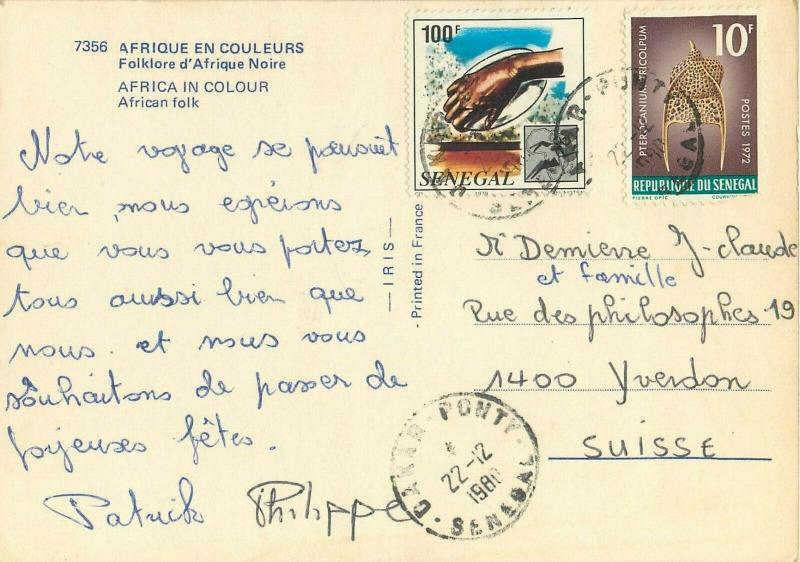 7356 AFRIQUE EN COULEURS
Folklore d'Afrique Noire
AFRICA IN COLOUR
African folk
Notre voyage se poursuit
bien, nous espérons
que vous vous portez
tous aussi bien que
nous. et nous vous
souhaitons de passer de
joyeuses fêtes.
Patrick Philippe
— IRIS —
- Printed in France
100F
SENEGAL
10F
PTEROCANIUM TRICOLPUM
POSTES 1972
REPUBLIQUE DU SENEGAL
PIERRE OPIC
Mr Demierre J-claude
et famille
Rue des philosophes 19
1400 Yverdon
SUISSE
DAKAR-PONTY
22-12
1980
SENEGAL